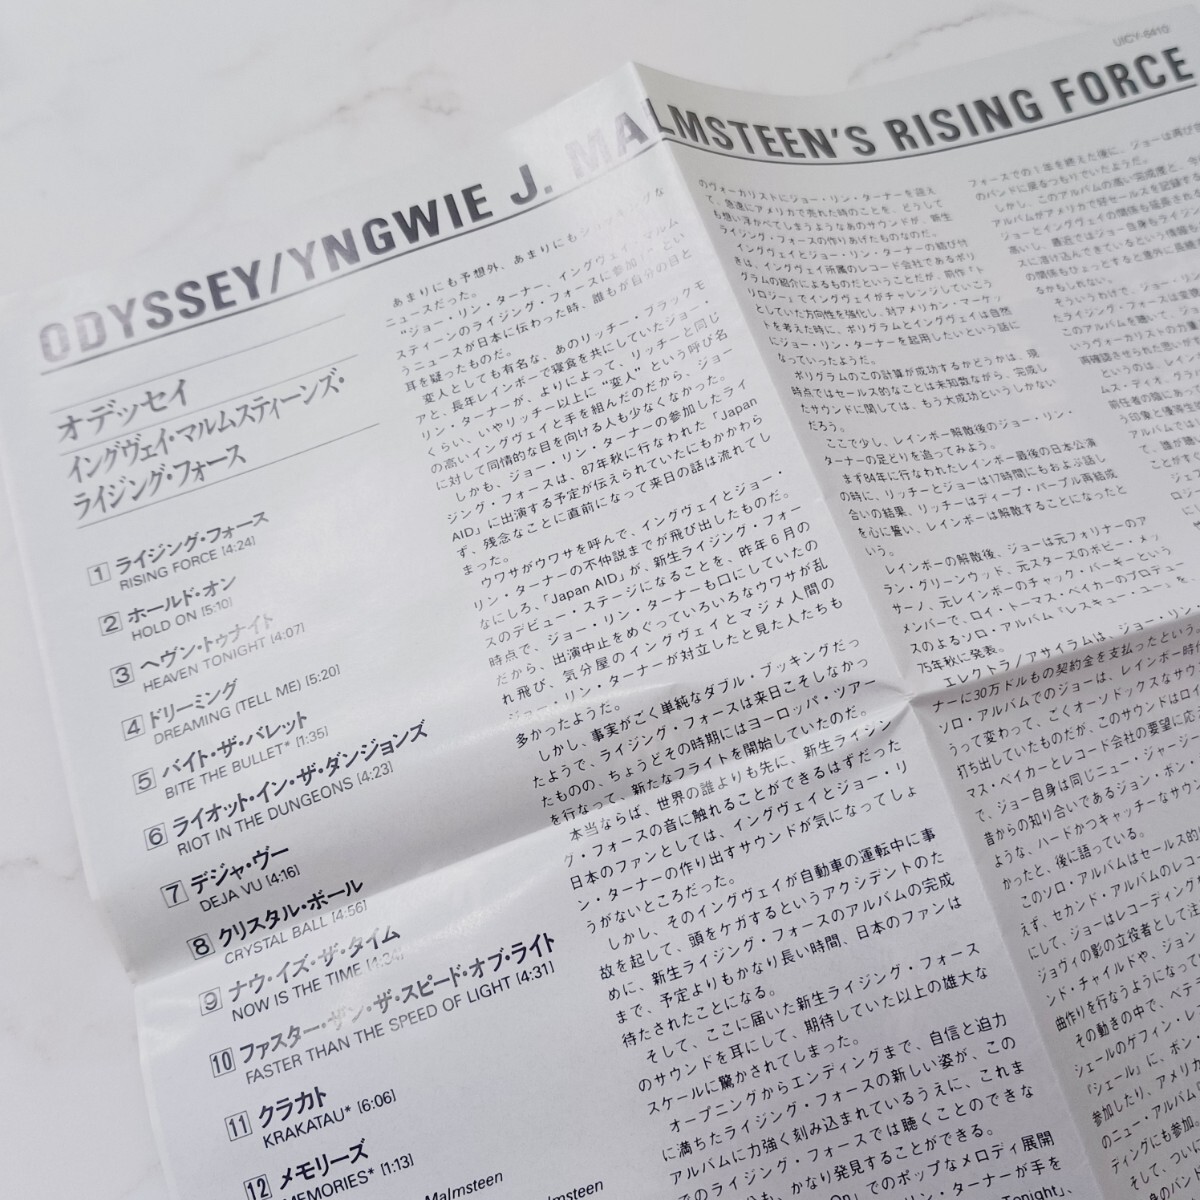 UICY-6410
ODYSSEY/YNGWIE J. MALMSTEEN'S RISING FORCE
オデッセイ
イングヴェイ・マルムスティーンズ・
ライジング・フォース
1 ライジング・フォース
RISING FORCE [4:24]
2 ホールド・オン
HOLD ON [5:10]
3 ヘヴン・トゥナイト
HEAVEN TONIGHT [4:07]
4 ドリーミング
DREAMING (TELL ME) [5:20]
5 バイト・ザ・バレット
BITE THE BULLET* [1:35]
6 ライオット・イン・ザ・ダンジョンズ
RIOT IN THE DUNGEONS [4:23]
7 デジャ・ヴー
DEJA VU [4:16]
8 クリスタル・ボール
CRYSTAL BALL [4:56]
9 ナウ・イズ・ザ・タイム
NOW IS THE TIME [4:34]
10 ファスター・ザン・ザ・スピード・オブ・ライト
FASTER THAN THE SPEED OF LIGHT [4:31]
11 クラカト
KRAKATAU* [6:06]
12 メモリーズ
MEMORIES* [1:13]
Malmsteen
almsteen
あまりにも予想外、あまりにもショッキングな
ニュースだった。
"ジョー・リン・ターナー、イングヴェイ・マルム
スティーンのライジング・フォースに参加！"とい
うニュースが日本に伝わった時、誰もが自分の目と
耳を疑ったものだ。
変人としても有名な、あのリッチー・ブラックモ
アと、長年レインボーで寝食を共にしていたジョー・
リン・ターナーが、よりによって、リッチーと同じ
くらい、いやリッチー以上に"変人"という呼び名
の高いイングヴェイと手を組んだのだから、ジョー
に対して同情的な目を向ける人も少なくなかった。
しかも、ジョー・リン・ターナーの参加したライ
ジング・フォースは、87年秋に行なわれた「Japan
AID」に出演する予定が伝えられていたにもかかわら
ず、残念なことに直前になって来日の話は流れてし
まった。
ウワサがウワサを呼んで、イングヴェイとジョー・
リン・ターナーの不仲説までが飛び出したものだ。
なにしろ、「Japan AID」が、新生ライジング・フォー
スのデビュー・ステージになることを、昨年6月の
時点で、ジョー・リン・ターナーも口にしていたの
だから、出演中止をめぐっていろいろなウワサが乱
れ飛び、気分屋のイングヴェイとマジメ人間の
ジョー・リン・ターナーが対立したと見た人たちも
多かったようだ。
しかし、事実がごく単純なダブル・ブッキングだっ
たようで、ライジング・フォースは来日こそしなかっ
たものの、ちょうどその時期にはヨーロッパ・ツアー
を行なって、新たなフライトを開始していたのだ。
本当ならば、世界の誰よりも先に、新生ライジン
グ・フォースの音に触れることができるはずだった
日本のファンとしては、イングヴェイとジョー・リ
ン・ターナーの作り出すサウンドが気になってしょ
うがないところだった。
しかし、そのイングヴェイが自動車の運転中に事
故を起して、頭をケガするというアクシデントのた
めに、新生ライジング・フォースのアルバムの完成
まで、予定よりもかなり長い時間、日本のファンは
待たされたことになる。
そして、ここに届いた新生ライジング・フォース
のサウンドを耳にして、期待していた以上の雄大な
スケールに驚かされてしまった。
オープニングからエンディングまで、自信と迫力
に満ちたライジング・フォースの新しい姿が、この
アルバムに力強く刻み込まれているうえに、これま
でのライジング・フォースでは聴くことのできな
も、かなり発見することができる。
On」でのポップなメロディ展開
リン・ターナーが手を
Tonight」、
のヴォーカリストにジョー・リン・ターナーを迎え
て、急速にアメリカで売れた時のことを、どうして
も想い浮かべてしまうようなあのサウンドが、新生
ライジング・フォースの作りあげたものなのだ。
イングヴェイとジョー・リン・ターナーの結び付
きは、イングヴェイ所属のレコード会社であるポリ
グラムの紹介によるものだということだが、前作『ト
リロジー』でイングヴェイがチャレンジしていこう
としていた方向性を強化し、対アメリカン・マーケッ
トを考えた時に、ポリグラムとイングヴェイは自然
にジョー・リン・ターナーを起用したいという話に
なっていったようだ。
ポリグラムのこの計算が成功するかどうかは、現
時点ではセールス的なことは未知数ながら、完成し
たサウンドに関しては、もう大成功というしかない
だろう。
ここで少し、レインボー解散後のジョー・リン・
ターナーの足どりを追ってみよう。
まず84年に行なわれたレインボー最後の日本公演
の時に、リッチーとジョーは17時間にもおよぶ話し
合いの結果、リッチーはディープ・パープル再結成
を心に誓い、レインボーは解散することになったと
いう。
レインボーの解散後、ジョーは元フォリナーのア
ラン・グリーンウッド、元スターズのボビー・メッ
サーノ、元レインボーのチャック・バーギーという
メンバーで、ロイ・トーマス・ベイカーのプロデュー
スのよるソロ・アルバム『レスキュー・ユー』を、
75年秋に発表。
エレクトラ/アサイラムは、ジョー・リン
ナーに30万ドルもの契約金を支払ったという。
ソロ・アルバムでのジョーは、レインボー時
うって変わって、ごくオーソドックスなサウ
打ち出していたものだが、このサウンドはロイ
マス・ベイカーとレコード会社の要望に応
で、ジョー自身は同じニュー・ジャージー
昔からの知り合いであるジョン・ボン・
ような、ハードかつキャッチーなサウン
かったと、後に語っている。
このソロ・アルバムはセールス的
えず、セカンド・アルバムのレコ
にして、ジョーはレコーディング
ジョヴィの影の立役者として注
ンド・チャイルドや、ジョン
曲作りを行なうようになって
その動きの中で、ベテ
シェールのゲフィン・レ
『シェール』に、ボン・
参加したり、アメリカ
のニュー・アルバム
ディングにも参加。
そして、ついに
のバン
フォースでの1年を終えた後に、ジョーは再び
のバンドに戻るつもりでいたようだ。
しかし、このアルバムの高い完成度と、今
アルバムがアメリカで好セールスを記録する
ジョーとイングヴェイの関係も延長され
高いし、最近ではジョー自身もライジン
スに溶け込んできているという情報も
の関係もひょっとすると意外に長続
るかもしれない。
そういうわけで、ジョー・リン
ライジング・フォースは
このアルバムを聴いて、ジョ
いうヴォーカリストの力量
再確認させられた思いが
というのは、レイン
ムス・ディオ、グラハ
前任者の陰にあっ
う印象と優等生
アルバムでは
て、誰が聴
ことがすぐ